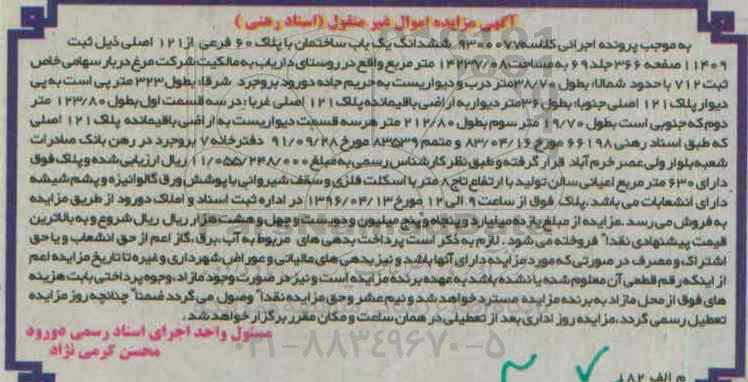 آگهی مزایده اموال غیر منقول (اسناد رهنی)
به موجب پرونده اجرائی کلاسه ۹۳۰۰۰۷۷ ششدانگ یک باب ساختمان با پلاک ۶۰ فرعی از ۱۲۱ اصلی ذیل ثبت
۱۱۴۰۹ صفحه ۳۶۶ جلد ۶۹ به مساحت ۱۴۲۳۷/۰۸ متر مربع واقع در روستای داریاب به مالکیت شرکت مرغ دربار سهامی خاص
ثبت ۷۱۲ با حدود شمالا: بطول ۳۸/۷۰ متر درب و دیواریست به حریم جاده دورود بروجرد شرقا: بطول ۳۲۳ متر پی است به پی
دیوار پلاک ۱۲۱ اصلی جنوبا: بطول ۳۶ متر دیوار به اراضی باقیمانده پلاک ۱۲۱ اصلی غربا: در سه قسمت اول بطول ۱۲۳/۸۰ متر
دوم که جنوبی است بطول ۱۹/۷۰ متر سوم بطول ۲۱۲/۸۰ متر هر سه قسمت دیواریست به اراضی باقیمانده پلاک ۱۲۱ اصلی
که طبق اسناد رهنی ۶۶۱۹۸ مورخ ۸۳/۰۴/۱۶ و متمم ۸۳۵۳۹ مورخ ۹۱/۰۹/۲۸ دفترخانه ۷ بروجرد در رهن بانک صادرات
شعبه بلوار ولی عصر خرم آباد قرار گرفته و طبق نظر کارشناس رسمی به مبلغ ۱۱/۰۵۵/۲۴۸/۰۰۰ ریال ارزیابی شده و پلاک فوق
دارای ۶۳۰ متر مربع اعیانی سالن تولید با ارتفاع تاج ۸ متر با اسکلت فلزی و سقف شیروانی با پوشش ورق گالوانیزه و پشم شیشه
دارای انشعابات می باشد، پلاک فوق از ساعت ۹ الی ۱۲ مورخ ۱۳۹۶/۰۴/۱۳ در اداره ثبت اسناد و املاک دورود از طریق مزایده
به فروش می رسد. مزایده از مبلغ یازده میلیارد و پنجاه و پنج میلیون و دویست و چهل و هشت هزار ریال ریال شروع و به بالاترین
قیمت پیشنهادی نقدا" فروخته می شود. لازم به ذکر است پرداخت بدهی های مربوط به آب، برق، گاز اعم از حق انشعاب و یا حق
اشتراک و مصرف در صورتی که مورد مزایده دارای آنها باشد و نیز بدهی های مالیاتی و عوارض شهرداری و غیره تا تاریخ مزایده اعم
از اینکه رقم قطعی آن معلوم شده یا نشده باشد به عهده برنده مزایده است و نیز در صورت وجود مازاد، وجوه پرداختی بابت هزینه
های فوق از محل مازاد به برنده مزایده مسترد خواهد شد و نیم عشر و حق مزایده نقدا" وصول می گردد ضمنا" چنانچه روز مزایده
تعطیل رسمی گردد، مزایده روز اداری بعد از تعطیلی در همان ساعت و مکان مقرر برگزار خواهد شد.
مسئول واحد اجرای اسناد رسمی دورود
محسن کرمی نژاد
۰۲۱-۸۸۳۴۹۶۷۰-۵
م الف ۱۸۲